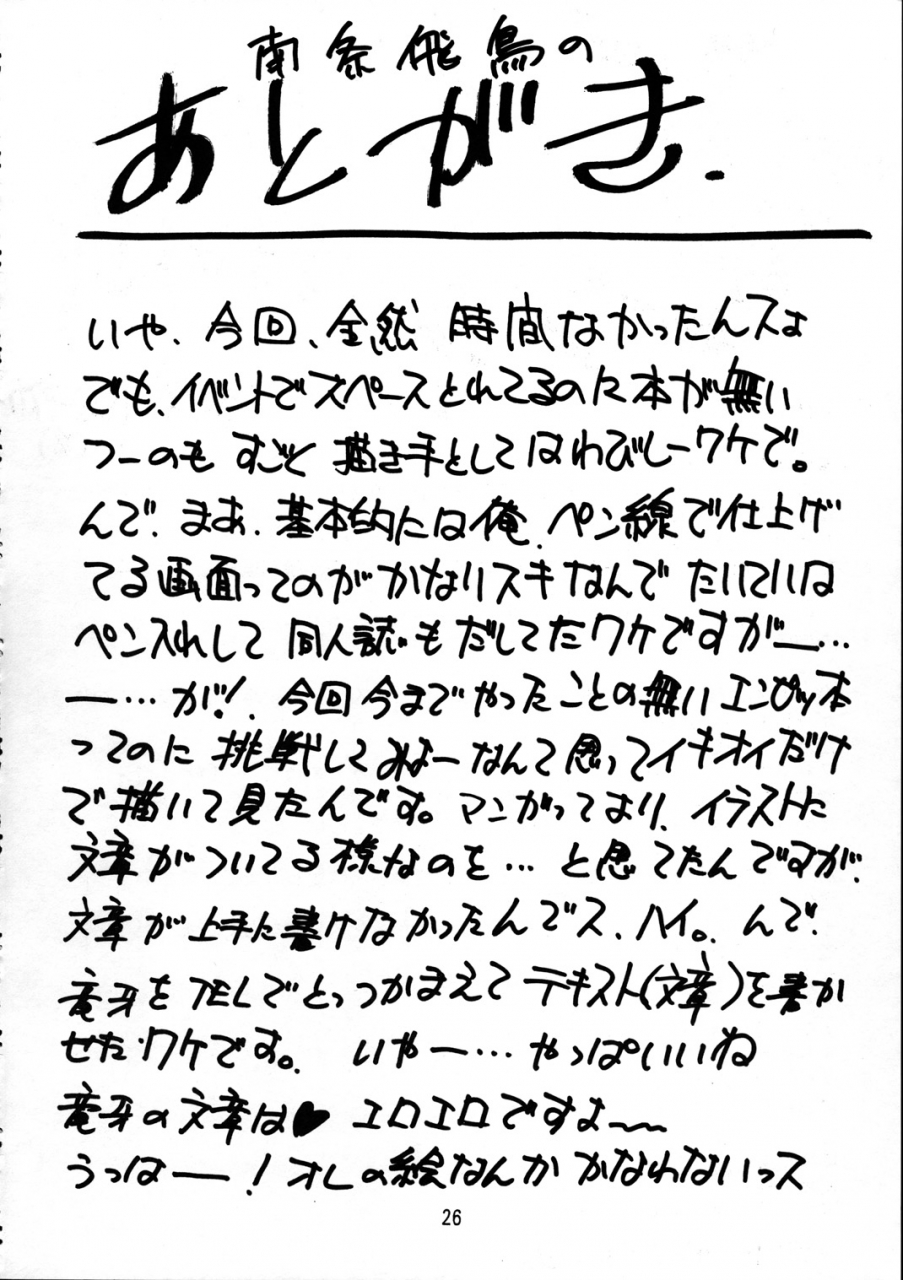 南条飛鳥の
あとがき.
いや、今回、全然 時間なかったんスよ
でも、イベントでスペースとれてるのに本が無い
つーのも すごく 描き手としてはわびしーワケで。
んで、まあ、基本的には俺、ペン線で仕上げ
てる画面ってのが かなりスキなんで たいていは
ペン入れして 同人誌もだしてたワケですがー…
ー…が!、今回今までやったことの無いエンピツ本
ってのに 挑戦してみよーなんて思ってイキオイだけ
で描いて見たんです。マンガってより、イラストに
文章がついてる様なのを…と思てたんですが、
文章が上手に書けなかったんでス、ハイ。んで、
竜牙をTELでとっつかまえて テキスト(文章)を書か
せたワケです。 いやー…やっぱいいね
竜牙の文章は♥ エロエロですよ〜
うっはー! オレの絵なんか かなわないっス
26